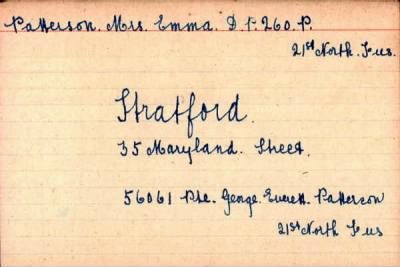 Patterson. Mrs. Emma. D P. 260. P.
21st North. Fus.
Stratford.
35 Maryland. Street.
56061 Pte. George. Everett. Patterson
21st North Fus